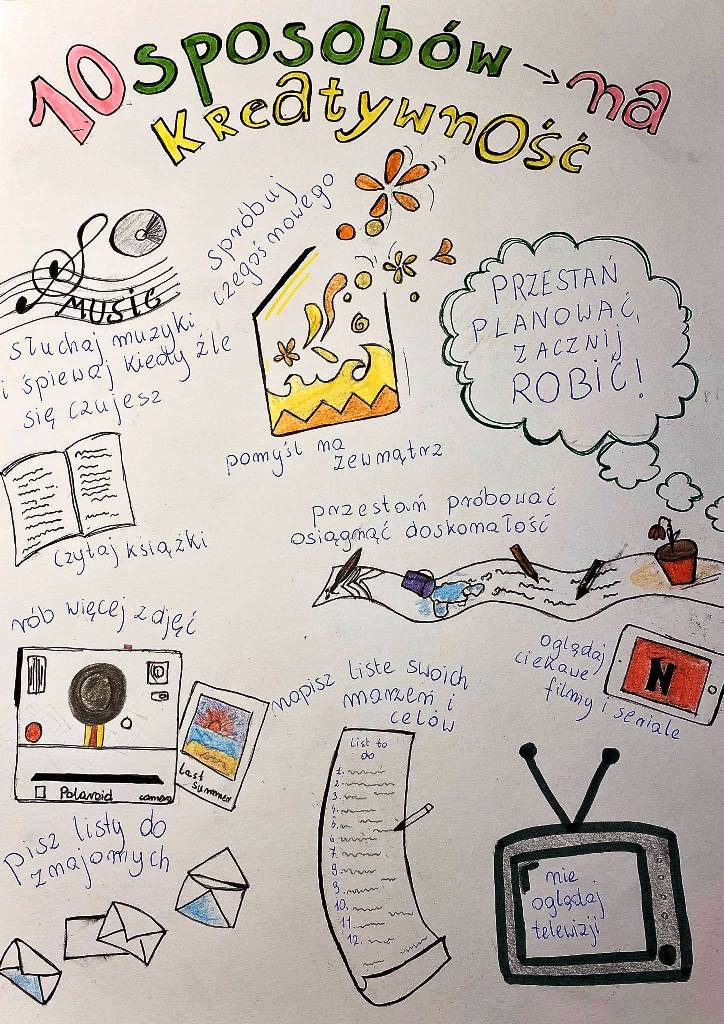 10 sposobów → na
kreatywność
MUSIC
słuchaj muzyki
i śpiewaj kiedy źle
się czujesz
spróbuj
czegoś nowego
pomyśl na
zewnątrz
PRZESTAŃ
PLANOWAĆ,
ZACZNIJ
ROBIĆ!
czytaj książki
przestań próbować
osiągnąć doskonałość
rób więcej zdjęć
Polaroid camera
last
summer
napisz liste swoich
marzeń i
celów
List to
do
1.
2.
3.
4.
5.
6.
7.
8.
9.
10.
11.
12.
oglądaj
ciekawe
filmy i seriale
N
pisz listy do
znajomych
nie
oglądaj
telewizji